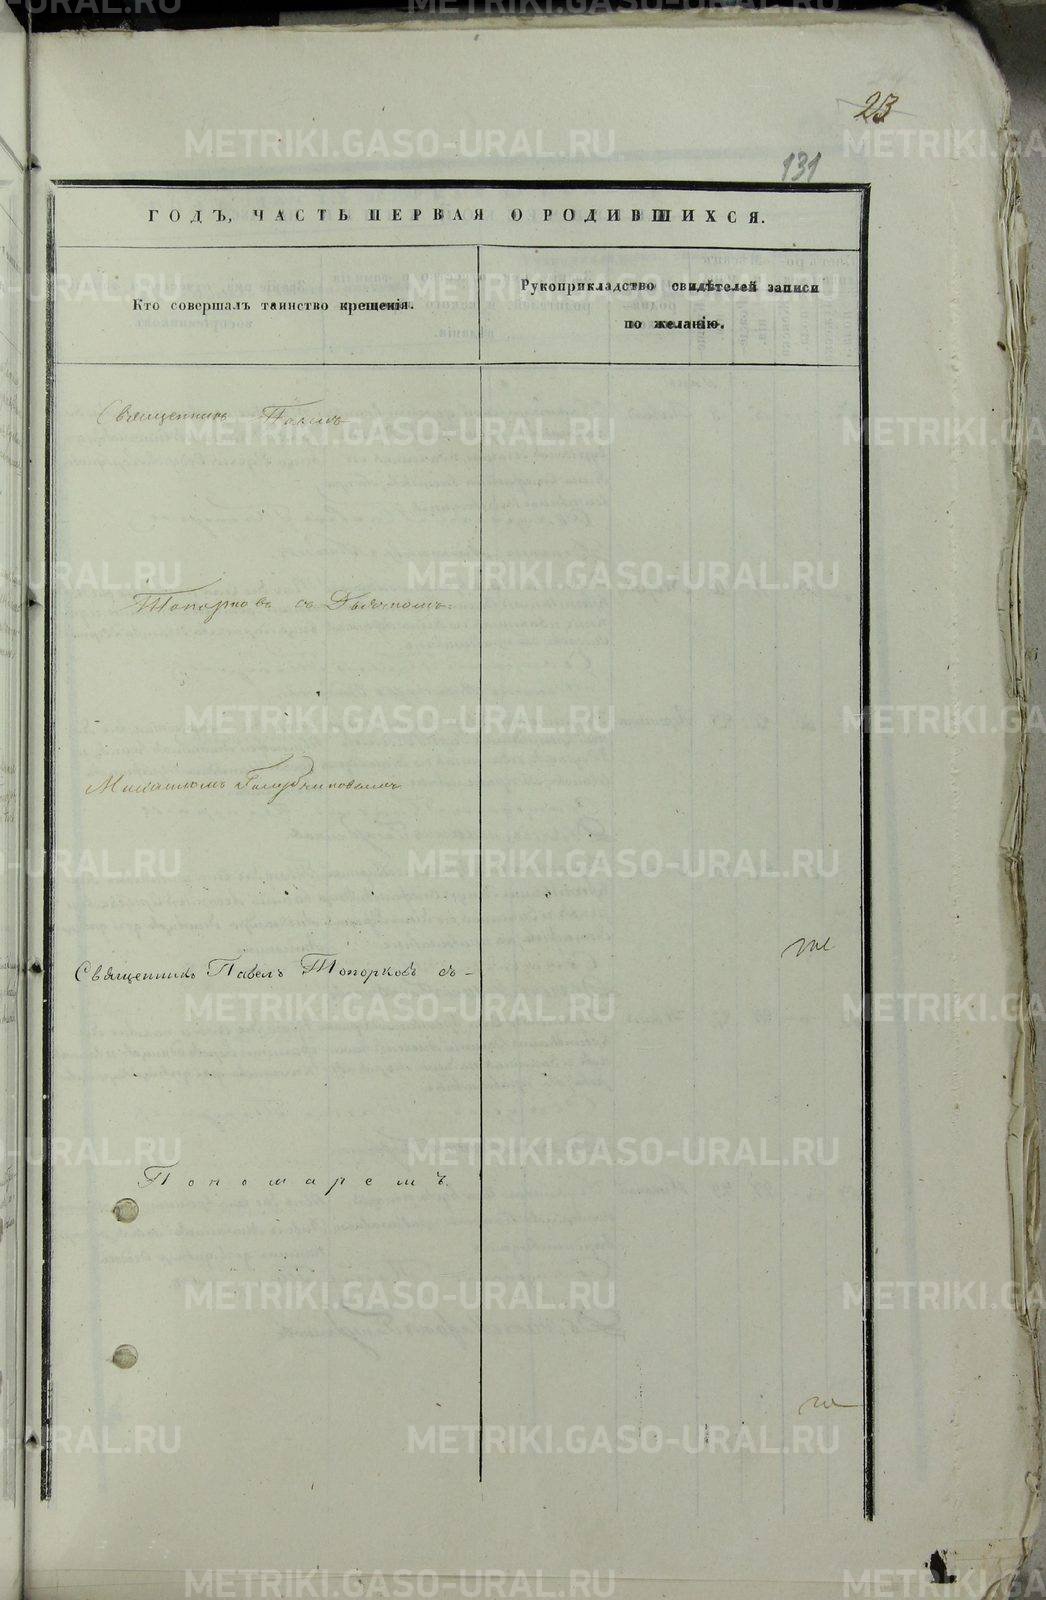 23
131
ГОДЪ, ЧАСТЬ ПЕРВАЯ О РОДИВШИХСЯ.
Кто совершалъ таинство крещенія.
Рукоприкладство свидѣтелей записи
по желанію.
Священникъ Павелъ
Топорковъ съ Дьячкомъ
Михаиломъ Голубчиковымъ
Священникъ Павелъ Топорковъ съ-
Пономаремъ
METRIKI.GASO-URAL.RU